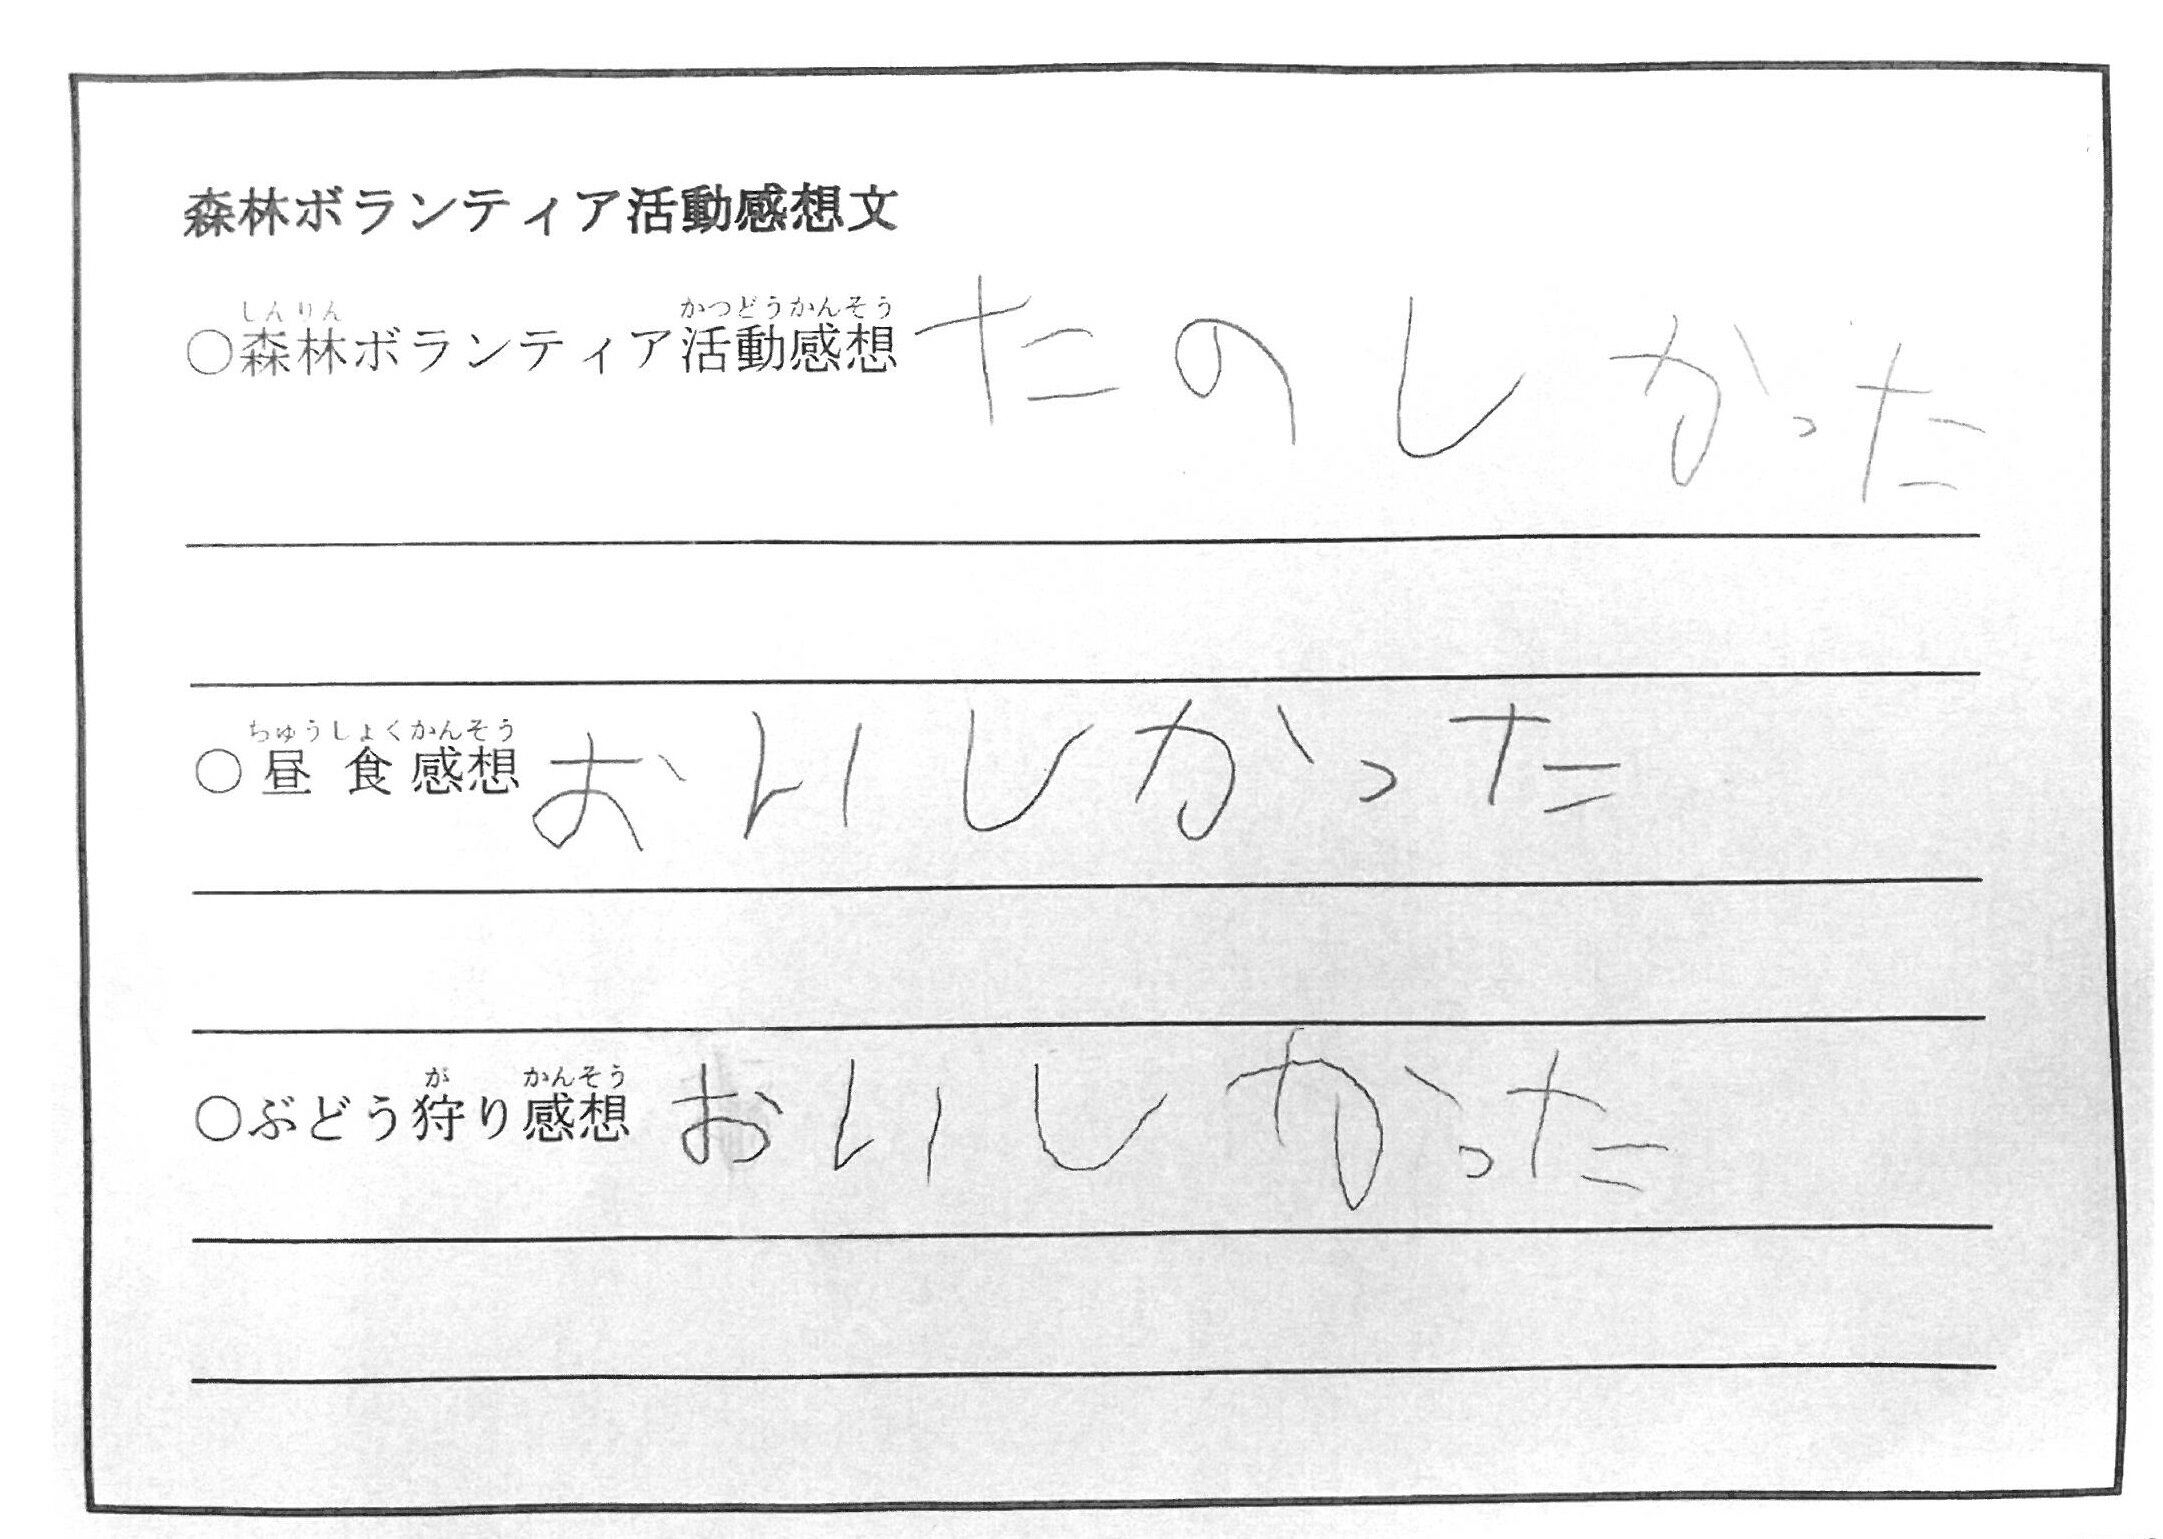 森林ボランティア活動感想文
しんりん かつどうかんそう
○森林ボランティア活動感想 たのしかった
ちゅうしょくかんそう
○昼食感想 おいしかった
が かんそう
○ぶどう狩り感想 おいしかった